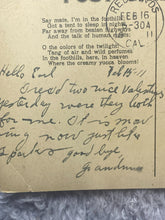 Say mate, I'm in the foothills
Got a tent to sleep in nights
Far away from beaten highways
And the talk of human
O the colors of the twilight,
Tang of air and mystic wells
In the foothills, here, in heaven
Where the creamy yucca blooms!
FEB 16
30A
11
CAL
Hello Earl Feb 15-11
I rec'd two nice Valentines
yesterday were they both
for me. It is
ing now just like
good bye.
Grandma